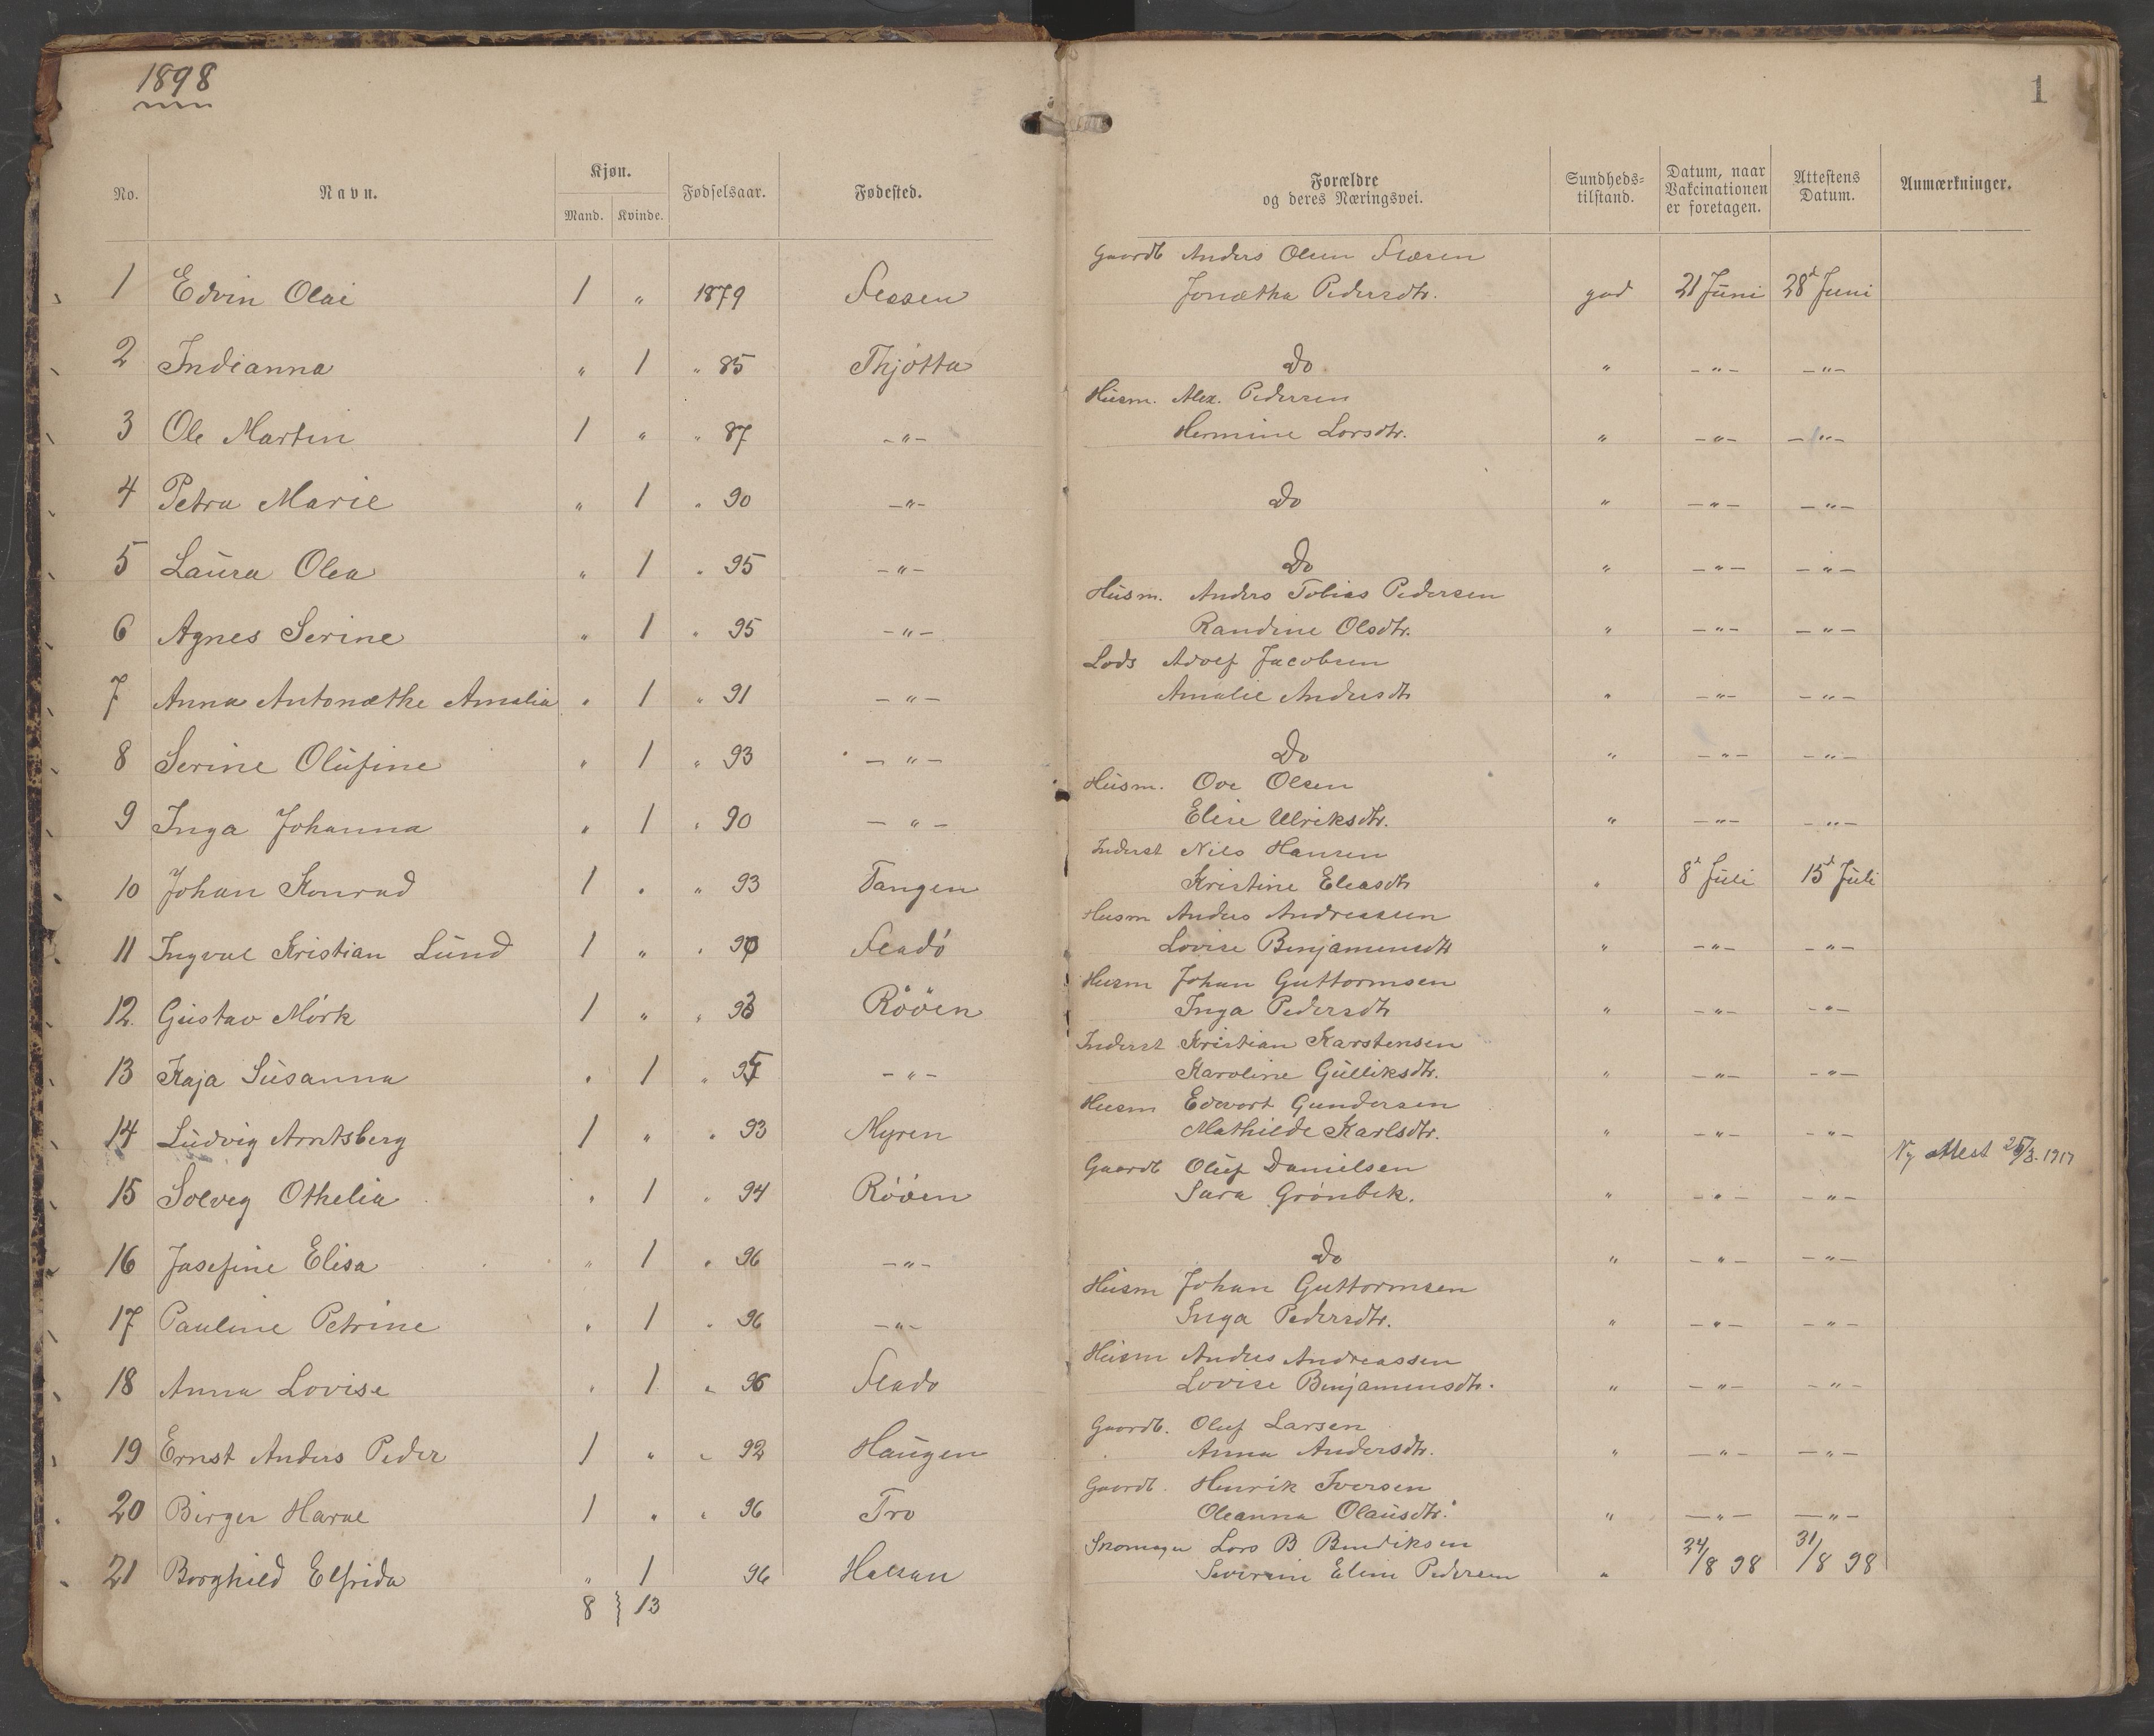 1898
1
No. Navn. Kjøn. Mand. Kvinde. Fødselsaar. Fødested. Forældre og deres Næringsvei. Sundheds-tilstand. Datum, naar Vakcinationen er foretagen. Attestens Datum. Anmærkninger.
Gaardb Anders Olsen
1 Edvin Olai 1 " 1879 Jonætha Pedersdtr. god 21 Juni 28d Juni
2 Indianna " 1 " 85 Thjøtta Do " -"- -"-
Husm. Alex. Pedersen
3 Ole Martin 1 " " 87 -"- Hermine Larsdtr. " -"- -"-
4 Petra Marie " 1 " 90 -"- Do " -"- -"-
5 Laura Olea " 1 " 95 -"- Do " -"- -"-
Husm. Anders Tobias Pedersen
6 Agnes Serine " 1 " 95 -"- Randine Olsdtr. " -"- -"-
Lods Adolf Jacobsen
7 Anna Antonæthe Amalia " 1 " 91 -"- Amalie Andersdtr " -"- -"-
8 Serine Olufine " 1 " 93 -"- Do " -"- -"-
Husm. Ove Olsen
9 Inga Johanna " 1 " 90 -"- Elise Ulriksdtr. " -"- -"-
Inderst Nils Hansen
10 Johan Konrad 1 " " 93 Tangen Kristine Eleasdtr " 8d Juli 15d Juli
Husm Anders Andreassen
11 Ingval Kristian Lund 1 " " Lovise Benjaminsdtr " -"- -"-
Husm Johan Guttormsen
12. Gustav Mörk 1 " " 93 Rööen Inga Pedersdtr " -"- -"-
Inderst Kristian Karstensen
13 Kaja Susanna " 1 " 95 -"- Karoline Gulliksdtr. " -"- -"-
Husm Edvart Gundersen
14 Ludvig Arntsberg 1 " " 93 Myren Mathilde Karlsdtr. " -"- -"-
Gaardb Oluf Danielsen Ny Attest 25/3. 1917
15 Solveg Othelia " 1 " 94 Rööen Sara Grønbek. " -"- -"-
16 Josefine Elisa " 1 " 96 -"- Do " -"- -"-
Husm Johan Guttormsen
17 Pauline Petrine " 1 " 96 -"- Inga Pedersdtr. " -"- -"-
Husm Anders Andreassen
18 Anna Lovise " 1 " 96 Lovise Benjaminsdtr. " -"- -"-
Gaardb. Oluf Larsen
19 Ernst Anders Peder 1 " " 92 Haugen Anna Andersdtr. " -"- -"-
Gaardb. Henrik Iversen
20 Birger Haral 1 " " 96 Tro Oleanna Olausdtr. " -"- -"-
Skomager Lars B Bendiksen
21 Borghild Elfrida " 1 96 Halsan Severine Eline Pedersen " 24/8 98 31/8 98
8 } 13